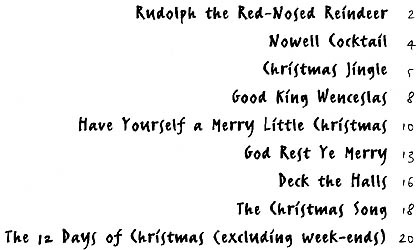 Rudolph the Red-Nosed Reindeer 2
Nowell Cocktail 4
Christmas Jingle 5
Good King Wenceslas 8
Have Yourself a Merry Little Christmas 10
God Rest Ye Merry 13
Deck the Halls 16
The Christmas Song 18
The 12 Days of Christmas (excluding week-ends) 20